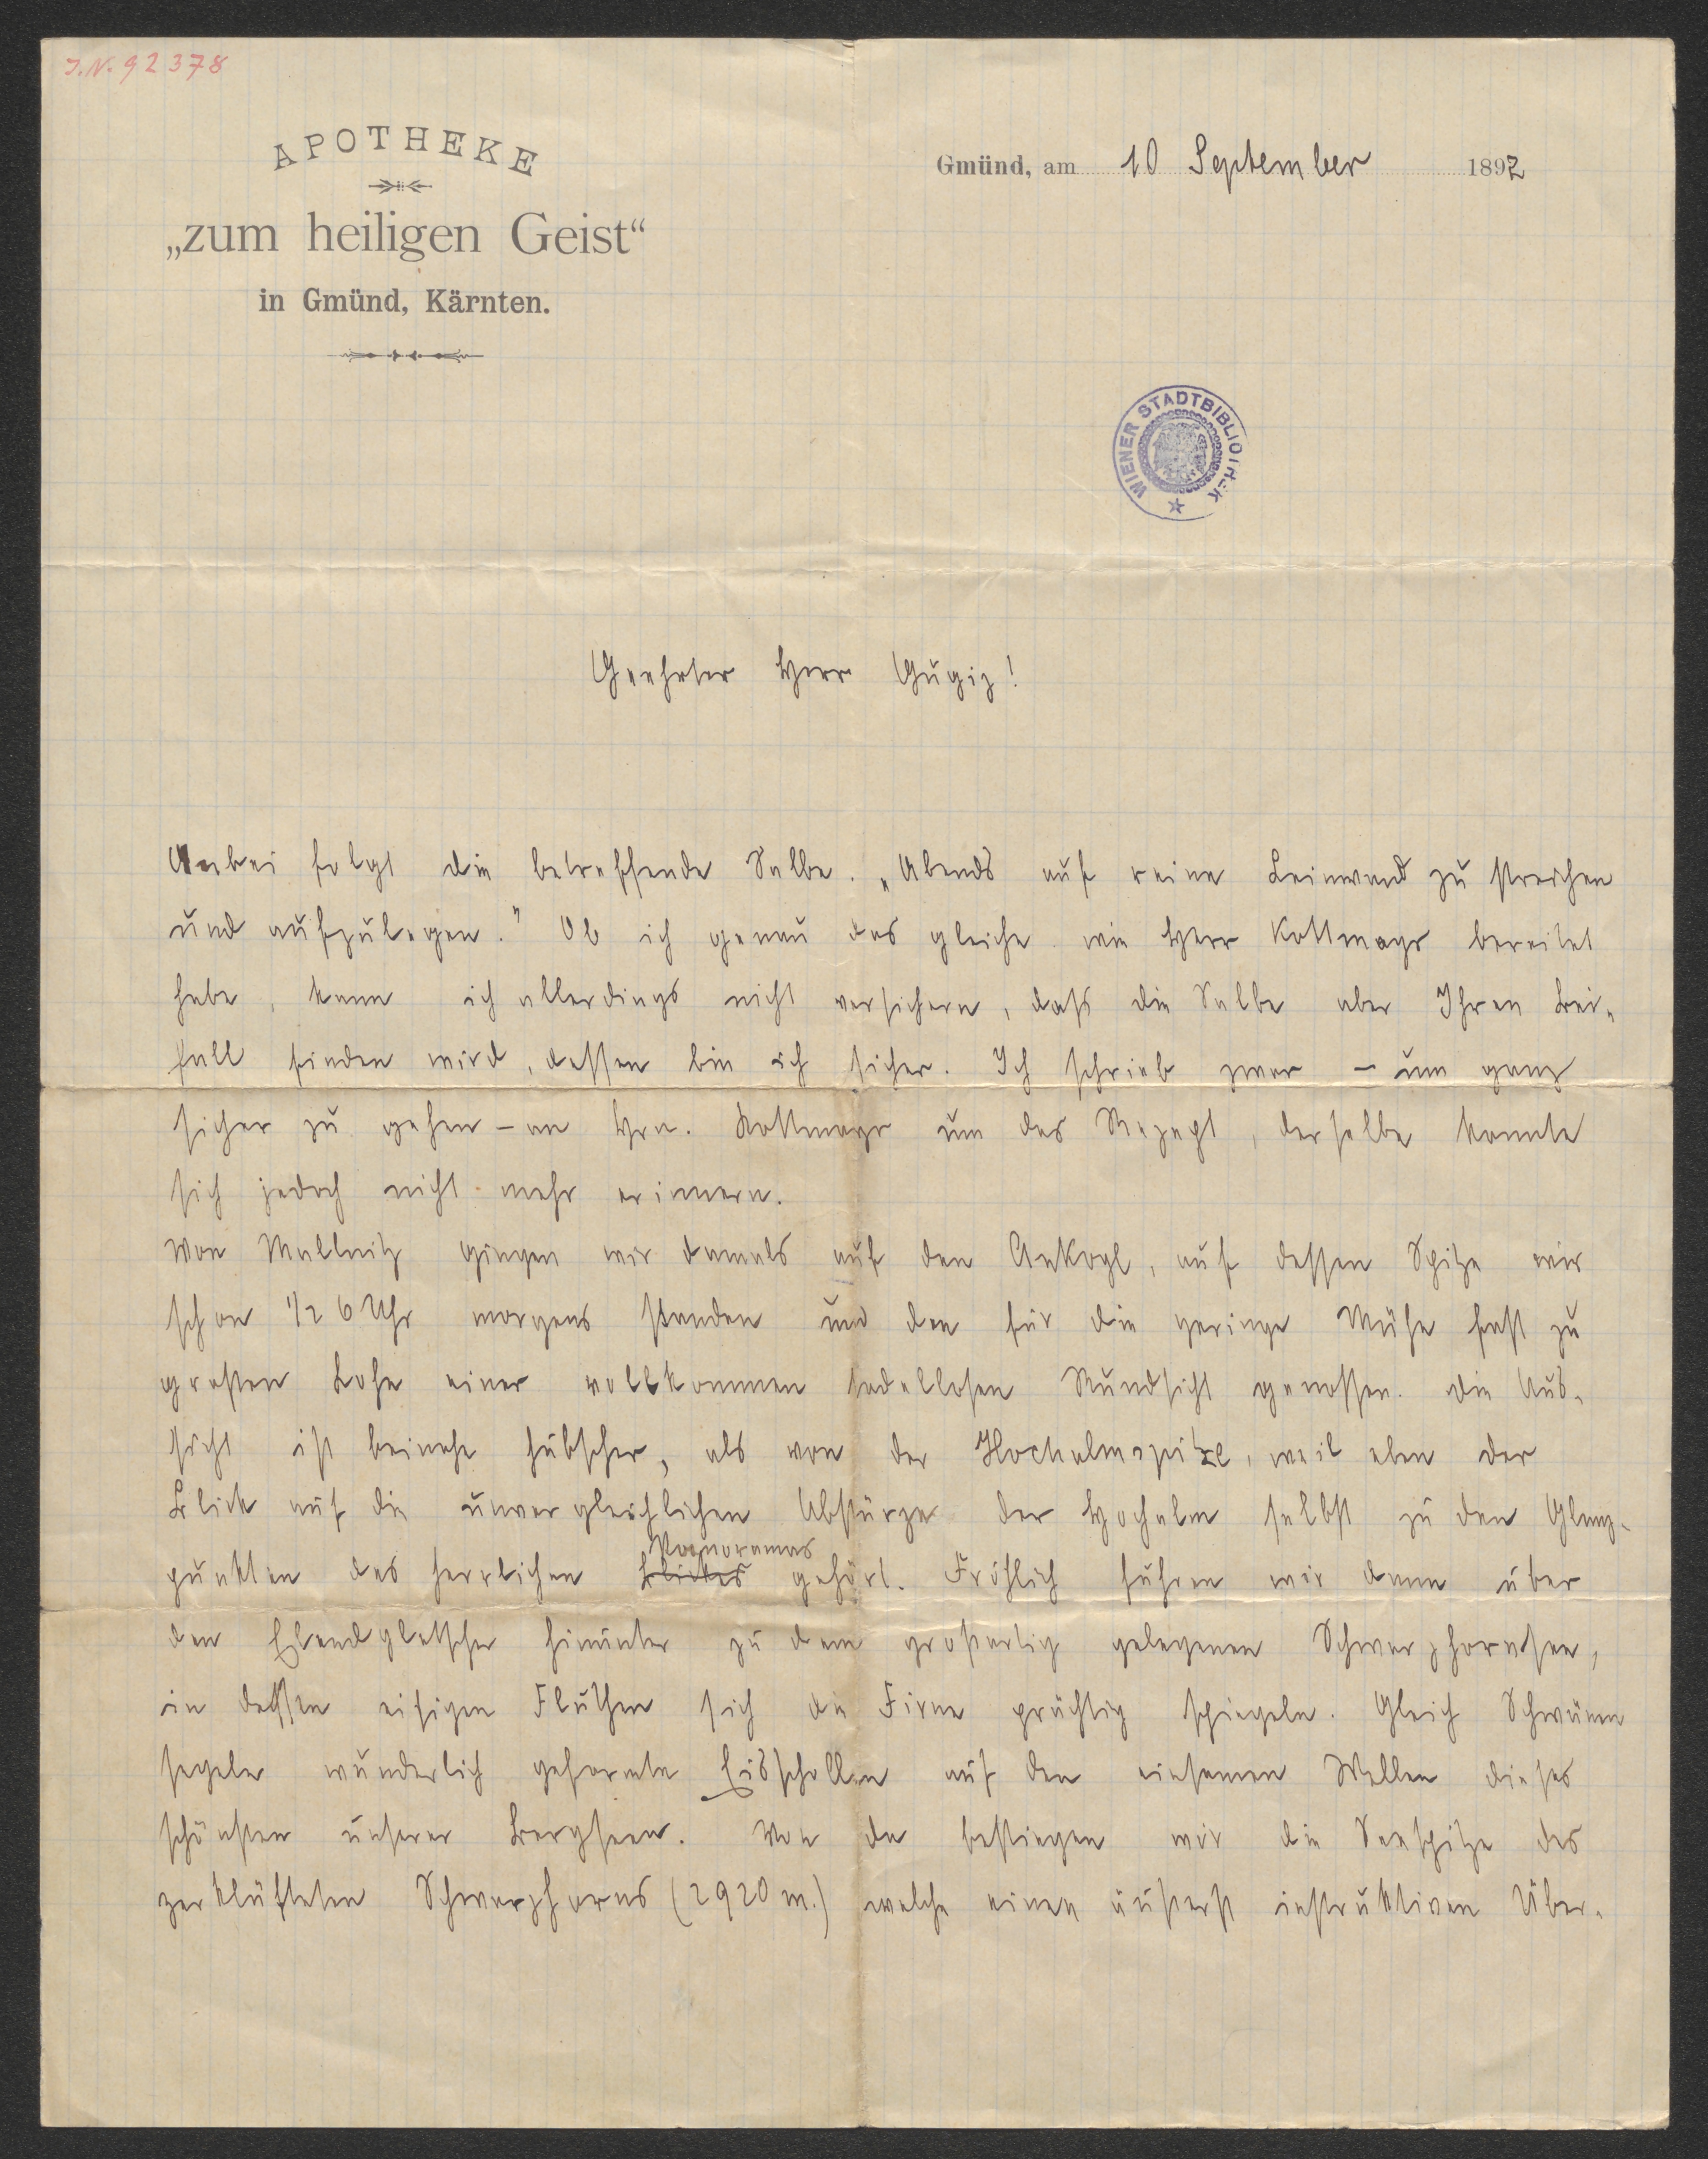 I.N. 92378
APOTHEKE
„zum heiligen Geist“
in Gmünd, Kärnten.
Gmünd, am 10 September 1892
WIENER STADTBIBLIOTHEK
Geehrter Herr Gugiz!
Anbei folgt die betreffende Salbe. „Abends auf reine Leinwand zu streichen
und aufzulegen.“ Ob ich genau das gleiche wie Herr Kottmayr bereitet
habe, kann ich allerdings nicht versichern, daß die Salbe aber Ihren Bei-
fall finden wird, dessen bin ich sicher. Ich schrieb zwar – um ganz
sicher zu gehen – an Hrn. Kottmayr um das Rezept, derselbe konnte
sich jedoch nicht mehr erinnern.
Von Mallnitz gingen wir damals auf den Ankogl, auf dessen Spitze wir
schon 1/2 6 Uhr morgens standen und den für die geringe Mühe fast zu
großen Lohn einer vollkommen tadellosen Rundsicht genossen. Die Aus-
sicht ist beinahe hübscher, als von der Hochalmspitze, weil eben der
Blick auf die unvergleichlichen Abstürze der Hochalm selbst zu den Glanz-
punkten des herrlichen Blickes Panoramas gehört. Fröhlich fuhren wir dann über
den Elendgletscher hinunter zu dem großartig gelegenen Schwarzhornsee,
in dessen eisigen Fluthen sich die Firne prächtig spiegeln. Gleich Schwänen
segeln wunderlich geformte Eisschollen auf den einsamen Wellen dieses
schönsten unserer Bergseen. Von da bestiegen wir die Seespitze des
zerklüfteten Schwarzhorns (2920 m.) welche einen äußerst instruktiven Über-